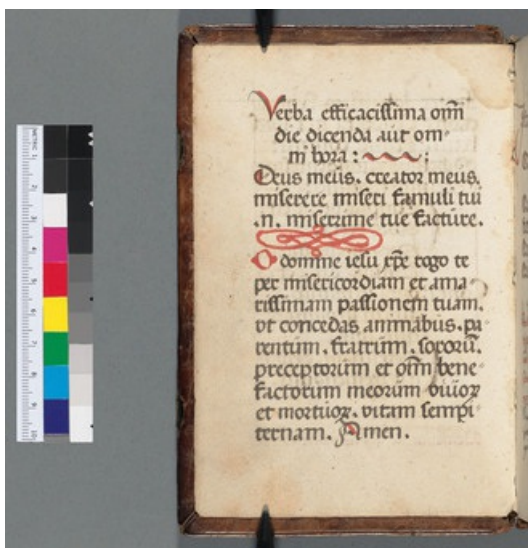 Verba efficacissima om̄i
die dicenda aut om-
ni hora : ;
Deus meus. creator meus.
miserere miseri famuli tui
.n. miserrime tue facture.
O domine iesu xp̄e rogo te
per misericordiam et ama
rissimam passionem tuam.
vt concedas animabus. pa
rentum. fratrum. sororū.
preceptorum et om̄i bene
factorum meorum viuoꝝ
et mortuoꝝ. vitam sempi
ternam. Amen.